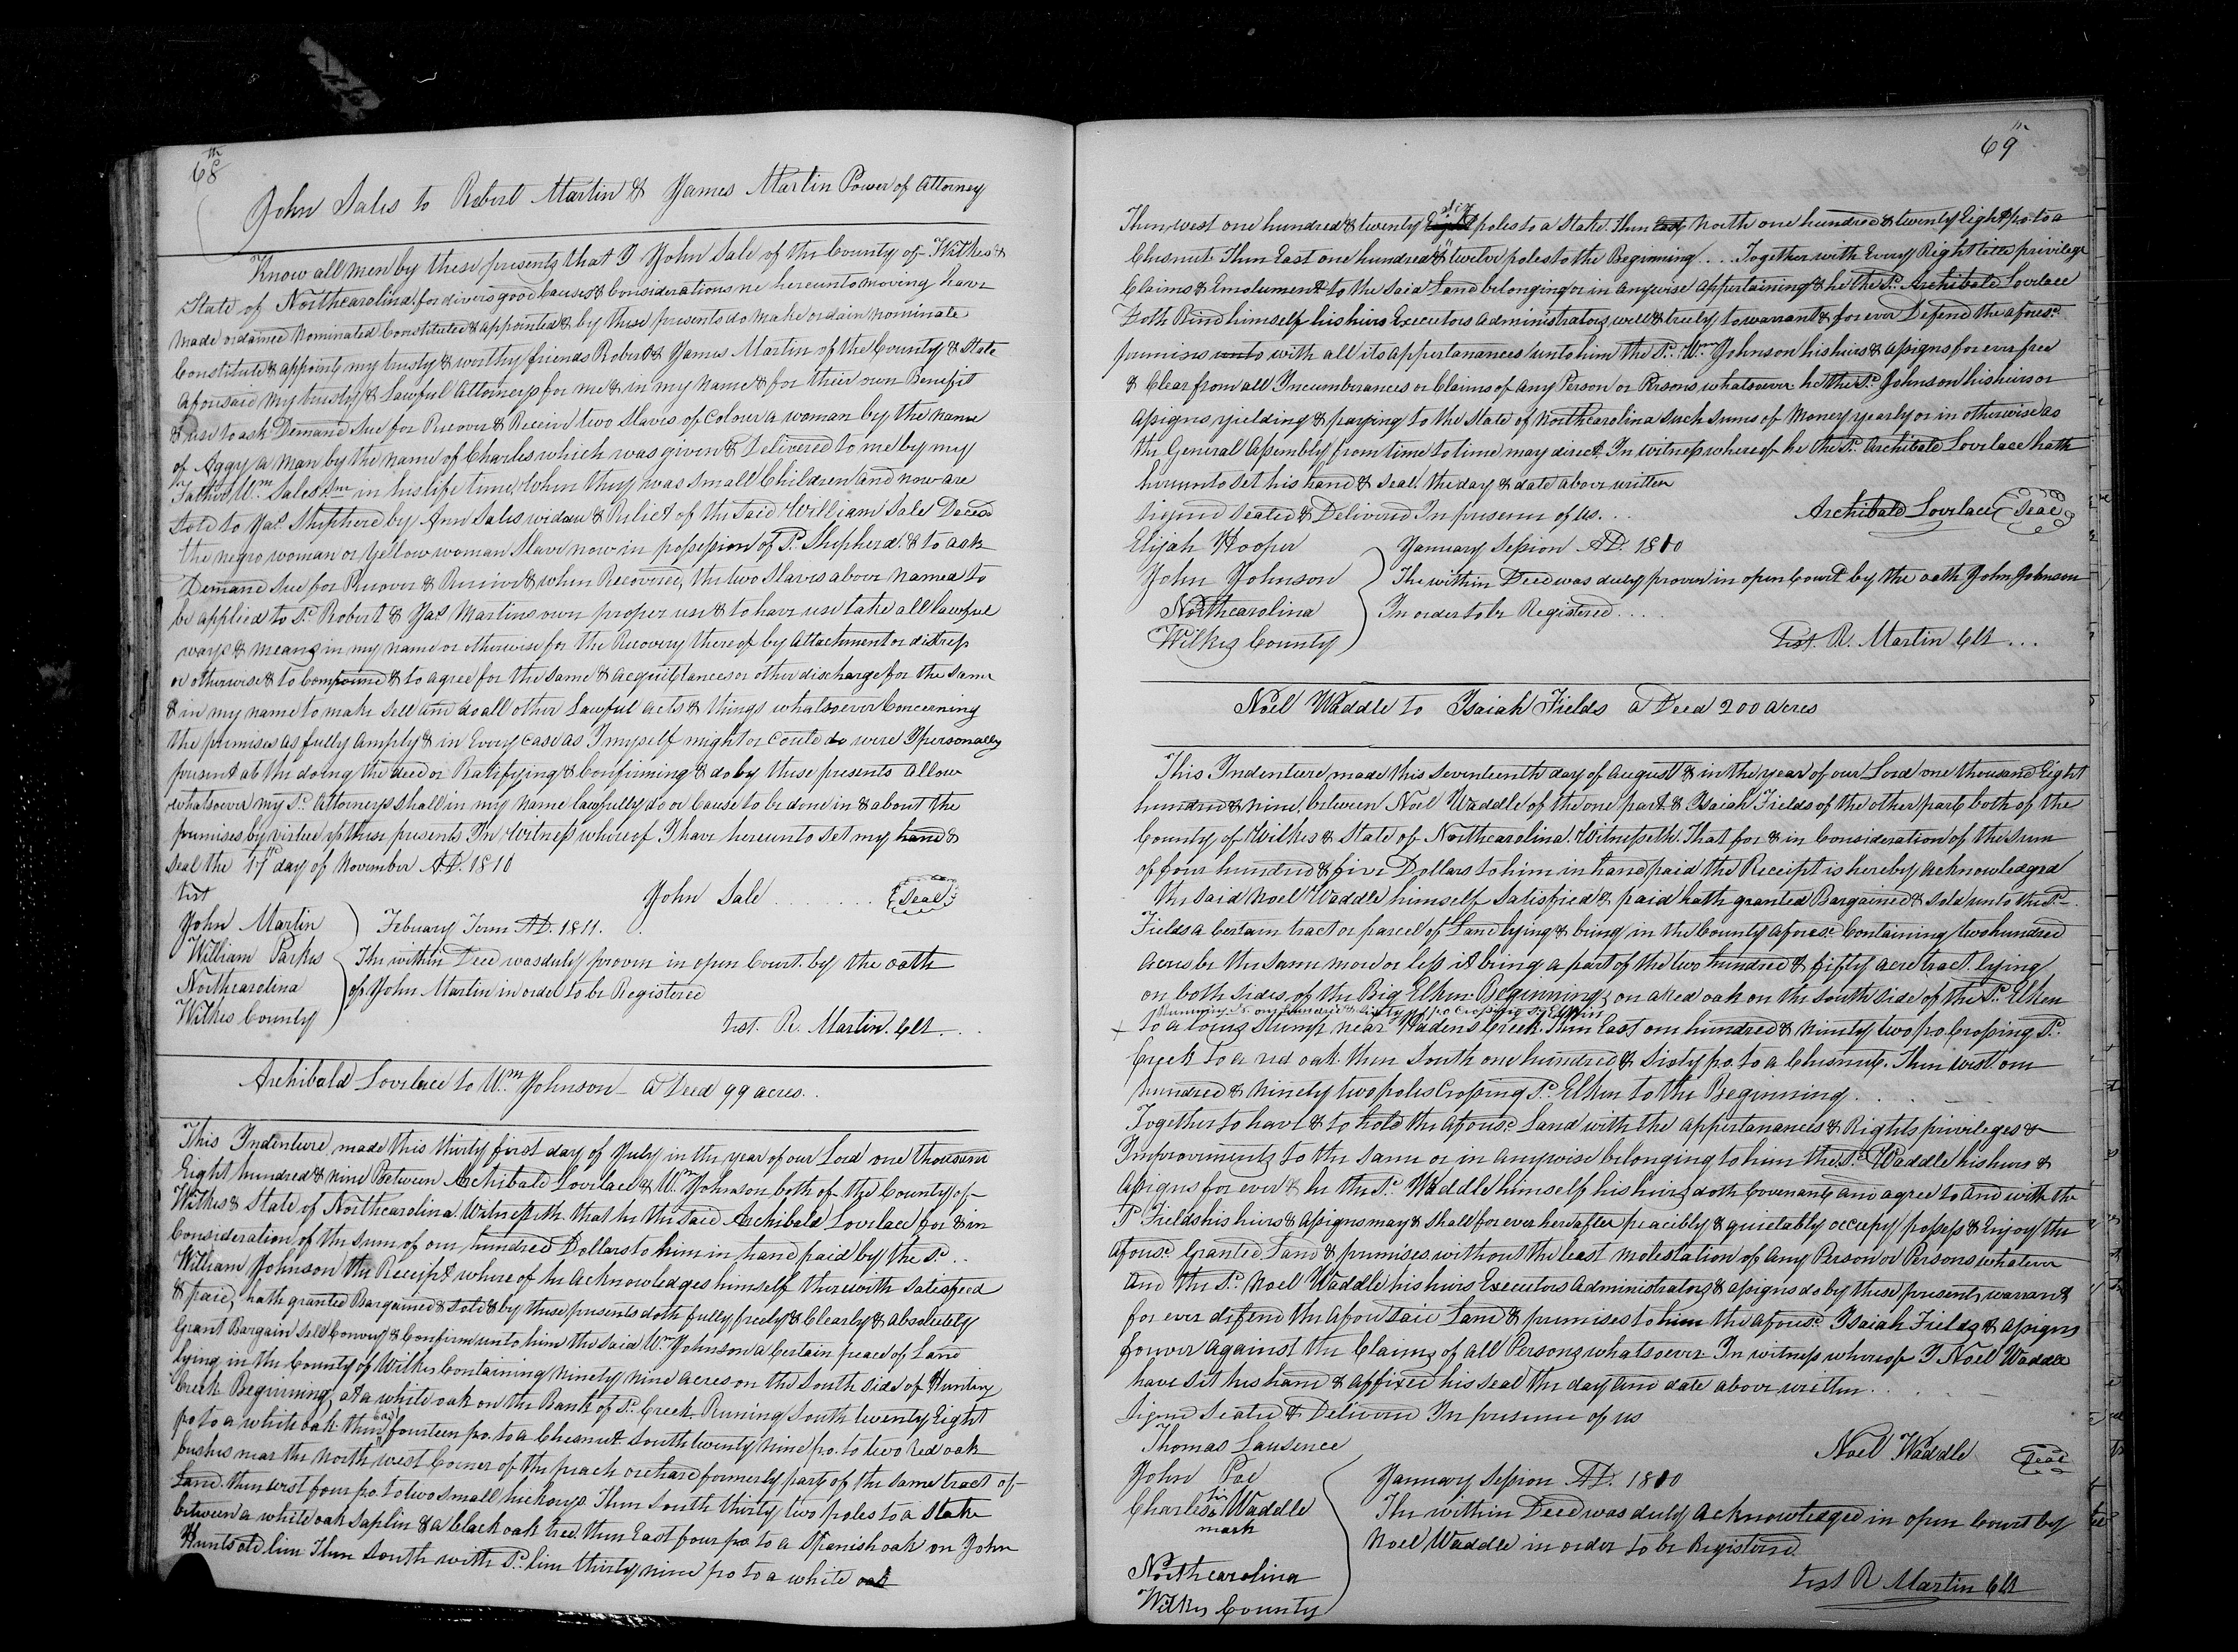 68th
John Sales to Robert Martin & James Martin Power of Attorney
Know all men by these presents that I John Sale of the County of Wilkes &
State of Northcarolina for divers good Causes & Considerations me hereunto moving have
made ordained Nominated Constituted & appointed & by these presents do make ordain nominate
Constitute & appoint my trusty & worthy friends Robert & James Martin of the County & State
aforesaid my trusty & Lawful Attorneys for me & in my name & for their own Benefit
& use to ask Demand Sue for Recover & Receive two Slaves of Colour a woman by the name
of Aggy a man by the name of Charles which was given & Delivered to me by my
Father Wm Sales Snr in his life time, When they was small Children and now are
Sold to Jas. Shepherd by Ann Sales widow & Relict of the said William Sale Decesd
the negro woman or yellow woman Slave now in possession of Sd. Shepherd. & to ask
Demand Sue for Recover & Receive & when Recovered, the two Slaves above Named to
be applied to Sd. Robert & Jas. Martins own proper use & to have use take all lawful
ways & means in my name or otherwise for the Recovery thereof by Attachment or distress
or otherwise & to Compound & to agree for the same & acquittances or other discharge for the same
& in my name to make Sell and do all other Lawful acts & things whatsoever Concerning
the premises as fully amply & in Every Case as I myself might or Could do were I personally
present at the doing the deed or Ratifying & Confirming & do by these presents allow
whatsoever my Sd. Attorneys shall in my name lawfully do or Cause to be done in & about the
premises by virtue of these presents In Witness whereof I have hereunto Set my hand &
Seal the 17th day of November AD. 1810
Test
John Sale . . . . . . . . Seal
John Martin
William Parks
Northcarolina
Wilkes County
Febuary Term AD. 1811.
The within Deed was duly proven in open Court by the oath
of John Martin in order to be Registered
Test. R. Martin. Clk. . .
Archibald Lovelace to Wm Johnson - a Deed 99 acres. .
This Indenture made this thirty first day of July in the year of our Lord one thousand
Eight hundred & nine Between Archibald Lovelace & Wm Johnson both of the County of
Wilkes & State of Northcarolina. Witnesseth that he the said Archibald Lovelace for & in
Consideration of the sum of one hundred Dollars to him in hand paid by the Sd. . .
William Johnson the Receipt where of he acknowledges himself therewith satisfied
& paid, hath granted Bargained & Sold & by these presents doth fully freely & Clearly & absolutely
Grant Bargain Sell Convey & Confirm unto him the said Wm Johnson a Certain peace of Land
lying in the County of Wilkes Containing Ninety Nine Acres on the South Side of Hunting
Creek Beginning, at a white oak on the Bank of Sd. Creek Runing South twenty Eight
po to a white oak then East fourteen po. to a Chesnut. South twenty nine po. to two red oak
bushes near the North west Corner of the peach orchard formerly part of the same tract of
Land. then west four po. to two small hickorys. Then South thirty two poles to a Stake
between a white oak Saplin & a black oak tree. then East four po to a Spanish oak on John
Hunts old line Then South with Sd. line thirty nine po to a white oak
69th
Then west one hundred & twenty six poles to a Stake. Then North one hundred & twenty Eight po. to a
Chesnut Then East one hundred & twelve poles to the Beginning . . . . Together with Every Right title privilege
Claims & Emolument to the Said Land belonging or in anywise appertaining & he the Sd. Archibald Lovelace
Doth Bind himself his heirs Executors Administrators will & truly to warrant & for ever Defend the aforesd.
premises unto with all its appertanances unto him the Sd. Wm Johnson his heirs & assigns for ever free
& Clear from all Incumberances or Claims of any Person or Persons whatsoever he the Sd. Johnson his heirs or
assigns yielding & paying to the State of Northcarolina such sums of Money yearly or in otherwise as
the General Assembly from time to time may direct. In witness whereof he the Sd. Archibald Lovelace hath
hereunto set his hand & Seal. the day & date above written
Signed Sealed & Delivered In presence of us. . .
Archibald Lovelace Seal
Elijah Hooper
John Johnson
Northcarolina
Wilkes County
January Session AD. 1810
The within Deed was duly proven in open Court by the oath John Johnson
In order to be Registered . . .
Test. R. Martin Clk . . .
Noel Waddle to Isaiah Fields a Deed 200 acres
This Indenture made this Seventeenth day of August & in the year of our Lord one thousand Eight
hundred & nine. between Noel Waddle of the one part & Isaiah Fields of the other part both of the
County of Wilkes & State of Northcarolina. Witnesseth. That for & in Consideration of the sum
of four hundred & five Dollars to him in hand paid the Receipt is hereby acknowledged
the said Noel Waddle himself Satisfied & paid hath granted Bargained & Sold unto the Sd.
Fields a Certain tract or parcel of Land lying & being in the County aforesd. Containing two hundred
acres be the same more or less it being a part of the two hundred & fifty acre tract. lying
on both sides of the Big Elkin. Beginning on a Red oak on the South side of the Sd. Elken
Running No. one hundred & sixty po Crossing Sd. Elkin
+ to a Stump near Wadens Creek. Then East one hundred & Ninety two po. Crossing Sd.
Creek to a red oak. then South one hundred & Sixty po. to a Chesnut. Then west one
hundred & ninety two poles Crossing Sd. Elken to the Beginning . . . .
Together to have & to hold the aforesd. Land with the appertanances & Rights privileges &
Improvements to the same or in anywise belonging to him the Sd. Waddle his heirs &
assigns for ever & he the Sd. Waddle himself his heirs doth Covenant and agree to and with the
Sd Fields his heirs & assigns may & shall for ever hereafter peacibly & quietably occupy possess & Enjoy the
aforesd. Granted Land & premises without the least molestation of any Person or Persons whatever
and the Sd. Noel Waddle his heirs Executors Administrators & assigns do by these presents warrant
for ever defend the aforesaid Land & premises to him the aforesd. Isaiah Fields & assigns
forever against the Claims of all Persons whatsoever In witness whereof I Noel Waddle
have Set his hand & affixed his Seal the day and date above written . . . .
Signed Sealed & Delivered In presence of us
Thomas
John Poe
Charles his Waddle
mark
Noel Waddle Seal
Northcarolina
Wilkes County
January Session AD. 1810
The within Deed was duly acknowledged in open Court by
Noel Waddle in order to be Registered.
Test R Martin Clk